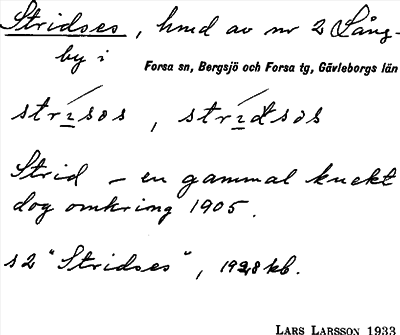 Stridses, hmd av nr 2 Lång-
by i Forsa sn, Bergsjö och Forsa tg, Gävleborgs län
strísəs, strídsəs
Strid – en gammal knekt
dog omkring 1905.
s2 "Stridses", 1928 kb.
LARS LARSSON 1933